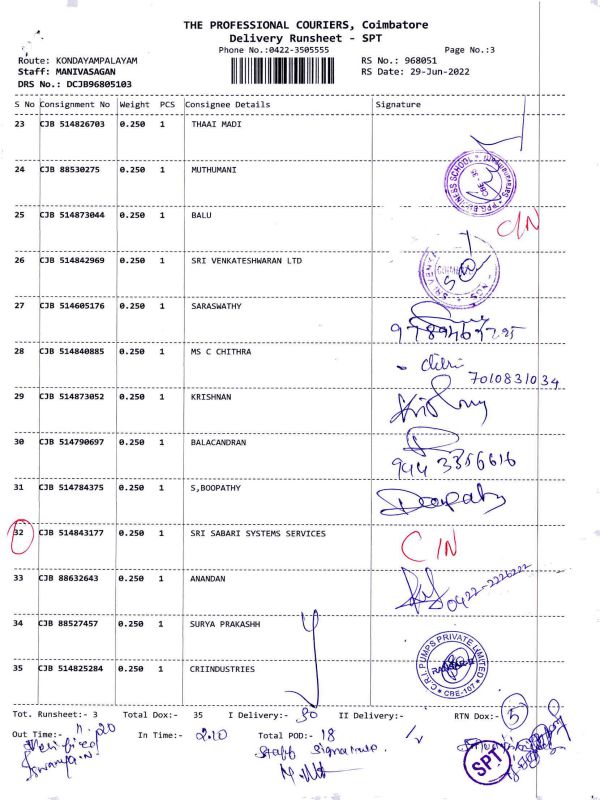 THE PROFESSIONAL COURIERS, Coimbatore
Delivery Runsheet - SPT
Phone No.:0422-3505555 Page No.:3
Route: KONDAYAMPALAYAM RS No.: 968051
Staff: MANIVASAGAN RS Date: 29-Jun-2022
DRS No.: DCJB96805103
S No Consignment No Weight PCS Consignee Details Signature
23 CJB 514826703 0.250 1 THAAI MADI
24 CJB 88530275 0.250 1 MUTHUMANI
25 CJB 514873044 0.250 1 BALU C/N
26 CJB 514842969 0.250 1 SRI VENKATESHWARAN LTD
27 CJB 514605176 0.250 1 SARASWATHY
28 CJB 514840885 0.250 1 MS C CHITHRA
7010831034
29 CJB 514873052 0.250 1 KRISHNAN
30 CJB 514790697 0.250 1 BALACANDRAN
944 3356616
31 CJB 514784375 0.250 1 S,BOOPATHY Boopathy
32 CJB 514843177 0.250 1 SRI SABARI SYSTEMS SERVICES C/N
33 CJB 88632643 0.250 1 ANANDAN
0422-2226222
34 CJB 88527457 0.250 1 SURYA PRAKASHH
35 CJB 514825284 0.250 1 CRIINDUSTRIES C.R.I. PUMPS PRIVATE LIMITED CBE-107
Tot. Runsheet:- 3 Total Dox:- 35 I Delivery:- 30 II Delivery:- RTN Dox:- 5
Out Time:- 11.20 In Time:- 2.10 Total POD:- 18
Verified Staff Signature
SPT